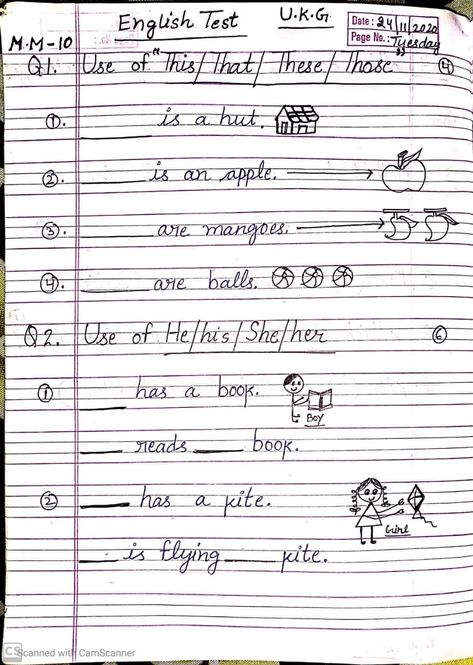 English Test U.K.G. Date: 24/11/2020
M.M-10 Page No.: Tuesday
Q1. Use of "This/That/These/Those" ④
①. ______ is a hut.
②. ______ is an apple.
③. ______ are mangoes.
④. ______ are balls.
Q2. Use of He/his/She/her ⑥
① ____ has a book.
BOY
____ reads ____ book.
② ____ has a kite.
Girl
____ is flying ____ kite.
CS Scanned with CamScanner